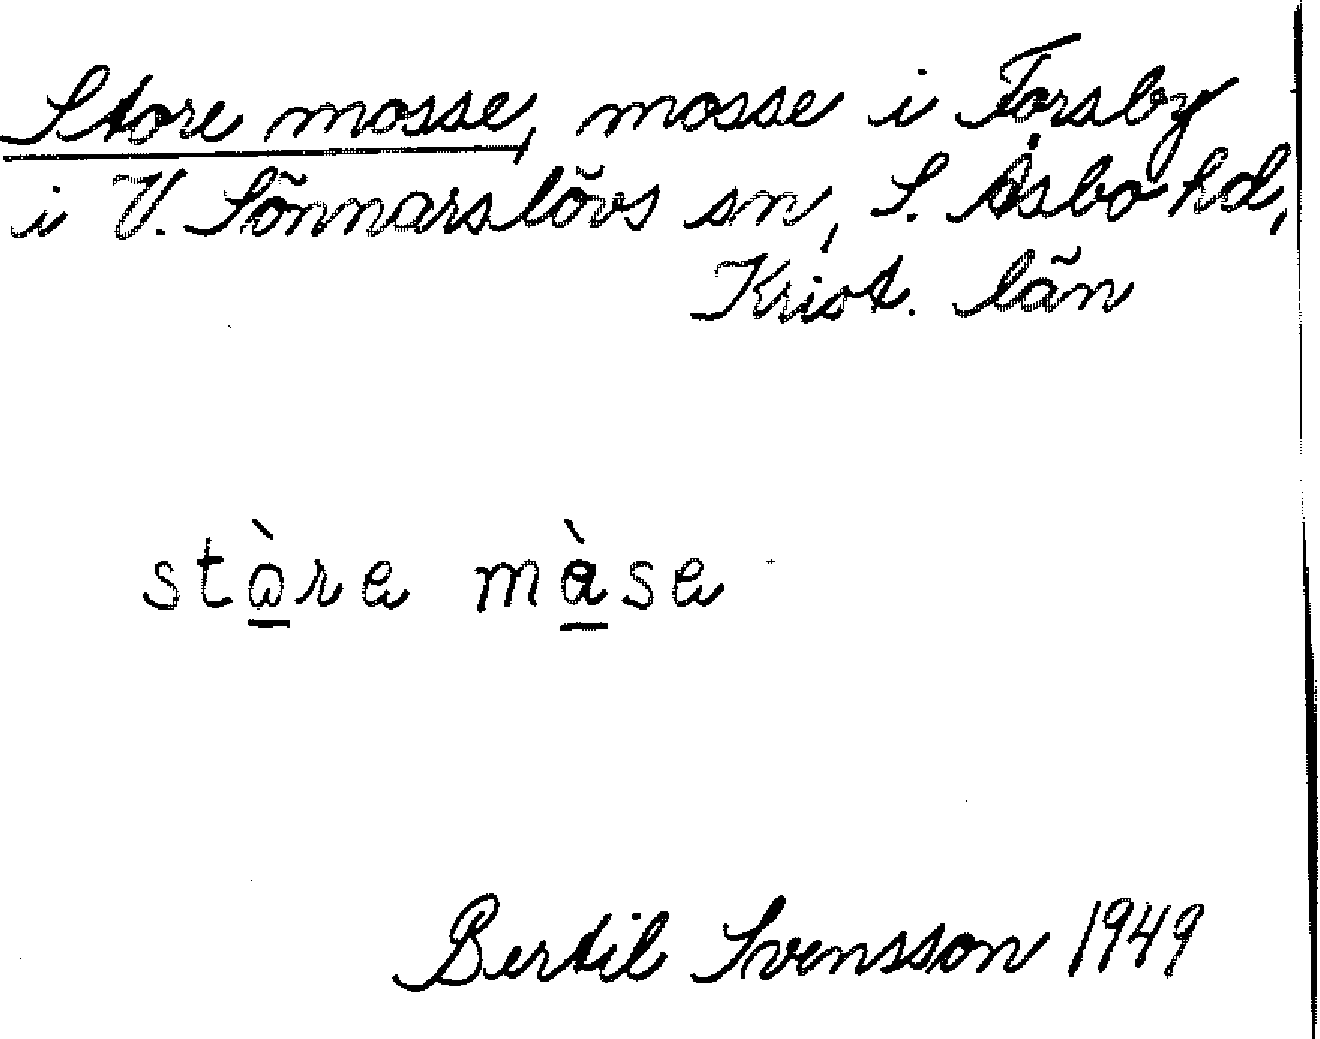 Store mosse, mosse i Forsby
i V. Sönnarslövs sn, S. Åsbo hd,
Krist. län
stàre màse
Bertil Svensson 1949